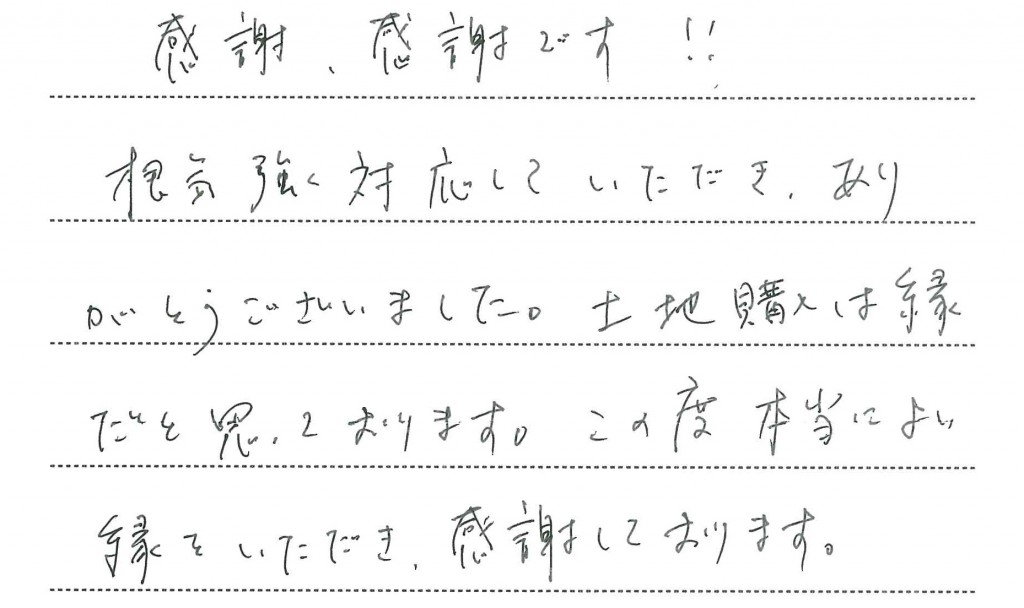 感謝、感謝です!!
根気強く対応していただき、あり
がとうございました。土地購入は縁
だと思っております。この度本当によい
縁をいただき、感謝しております。